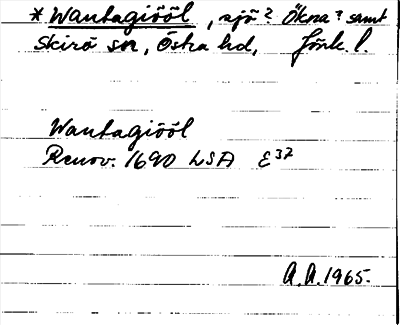 * Wantagiööl, sjö? Ökna? samt
Skirö sn, Östra hd, Jönk. l.
Wantagiööl
Renov. 1690 LSA E 37
A.A. 1965.